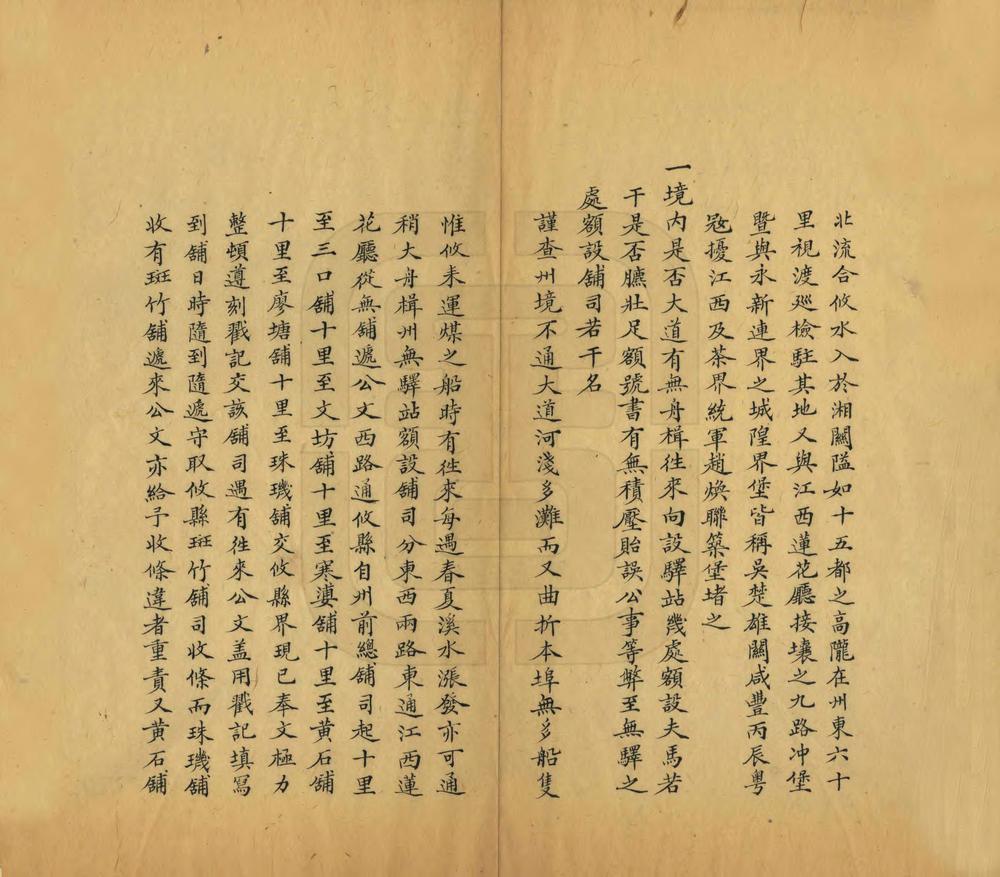 北流合攸水入於湘關隘如十五都之高隴在州東六十
里視渡廵檢駐其地又與江西蓮花廳接壤之九路冲堡
暨與永新連界之城隍界堡皆稱吳楚雄關咸豐丙辰粵
宼擾江西及茶界統軍趙煥聯築堡堵之
一境内是否大道有無舟楫徃來向設驛站幾處額設夫馬若
干是否臕壯足額號書有無積壓貽誤公事等弊至無驛之
處額設舖司若干名
謹查州境不通大道河淺多灘而又曲折本埠無多船隻
惟攸耒運煤之船時有徃來每遇春夏溪水漲發亦可通
稍大舟楫州無驛站額設舖司分東西兩路東通江西蓮
花廳從無舖遞公文西路通攸縣自州前總舖司起十里
至三口舖十里至文坊舖十里至寒漊舖十里至黄石舖
十里至廖塘舖十里至珠璣舖交攸縣界現已奉文極力
整頓遵刻戳記交該舖司遇有徃來公文盖用戳記填寫
到舖日時隨到隨遞守取攸縣斑竹舖司收條而珠璣舖
收有斑竹舖遞來公文亦給予收條違者重責又黄石舖